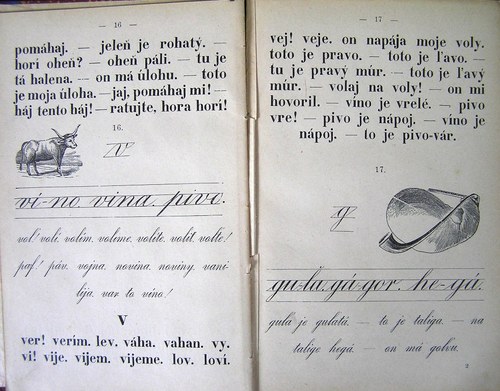 — 16 —
pomáhaj. — jeleň je rohatý. —
horí oheň? — oheň páli. — tu je
tá halena. — on má úlohu. — toto
je moja úloha. — jaj, pomáhaj mi! —
háj tento háj! — ratujte, hora horí!
16.
v
ví-no vina pivo.
vol! volí. volím. volíme. volíte. volil. voľte!
paf! páv. vojna. novina. noviny. vani-
lija. var. to víno!
v
ver! verím. lev. váha. vahan. vy.
ví! vije. vijem. vijeme. lov. loví.
— 17 —
vej! veje. on napája moje voly.
toto je pravo. — toto je ľavo. —
tu je pravý múr. — toto je ľavý
múr. — volaj na voly! — on mi
hovoril. — víno je vrelé. — pivo
vre! — pivo je nápoj. — víno je
nápoj. — to je pivo-vár.
17.
g
gu-ľa gá-gor. he-gá.
guľa je guľatá. — to je taliga. — na
talige hegá. — on má golvu.
2